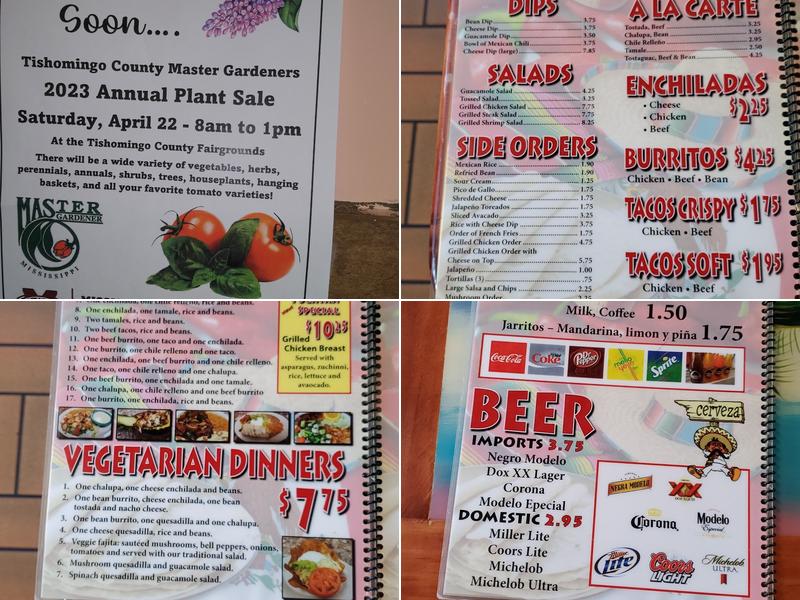 Soon....
Tishomingo County Master Gardeners
2023 Annual Plant Sale
Saturday, April 22 - 8am to 1pm
At the Tishomingo County Fairgrounds
There will be a wide variety of vegetables, herbs,
perennials, annuals, shrubs, trees, houseplants, hanging
baskets, and all your favorite tomato varieties!
MASTER
GARDENER
MISSISSIPPI
DIPS
Bean Dip 3.75
Cheese Dip 3.75
Guacamole Dip 3.50
Bowl of Mexican Chili 3.75
Cheese Dip (large) 7.85
SALADS
Guacamole Salad 4.25
Tossed Salad 3.25
Grilled Chicken Salad 7.75
Grilled Steak Salad 7.75
Grilled Shrimp Salad 8.25
SIDE ORDERS
Mexican Rice 1.90
Refried Bean 1.90
Sour Cream 1.25
Pico de Gallo 1.75
Shredded Cheese 1.75
Jalapeño Toreados 1.75
Sliced Avacado 3.25
Rice with Cheese Dip 3.75
Order of French Fries 1.75
Grilled Chicken Order 4.75
Grilled Chicken Order with
Cheese on Top 5.75
Jalapeño 1.00
Tortillas (3) .75
Large Salsa and Chips 2.25
Mushroom Order 2.25
A LA CARTE
Tostada, Beef 3.25
Chalupa, Bean 3.25
Chile Relleño 2.95
Tamale 2.50
Tostaguac, Beef & Bean 4.25
ENCHILADAS
• Cheese
• Chicken
• Beef
$2.25
BURRITOS $4.25
Chicken • Beef • Bean
TACOS CRISPY $1.75
Chicken • Beef
TACOS SOFT $1.95
Chicken • Beef
8. One enchilada, one tamale, rice and beans.
9. Two tamales, rice and beans.
10. Two beef tacos, rice and beans.
11. One beef burrito, one taco and one enchilada.
12. One burrito, one chile relleno and one taco.
13. One enchilada, one beef burrito and one chile relleno.
14. One taco, one chile relleno and one chalupa.
15. One beef burrito, one enchilada and one tamale.
16. One chalupa, one chile relleno and one beef burrito
17. One burrito, one enchilada, rice and beans.
SPECIAL
$10.45
Grilled
Chicken Breast
Served with
asparagus, zuchinni,
rice, lettuce and
avaocado.
VEGETARIAN DINNERS
$7.75
1. One chalupa, one cheese enchilada and beans.
2. One bean burrito, cheese enchilada, one bean
tostada and nacho cheese.
3. One bean burrito, one quesadilla and one chalupa.
4. One cheese quesadilla, rice and beans.
5. Veggie fajita: sautéed mushrooms, bell peppers, onions,
tomatoes and served with our traditional salad.
6. Mushroom quesadilla and guacamole salad.
7. Spinach quesadilla and guacamole salad.
Milk, Coffee 1.50
Jarritos – Mandarina, limon y piña 1.75
Coca-Cola
Diet Coke
Dr Pepper
mello yello
Sprite
BEER
IMPORTS 3.75
Negro Modelo
Dox XX Lager
Corona
Modelo Epecial
DOMESTIC 2.95
Miller Lite
Coors Lite
Michelob
Michelob Ultra
cerveza
NEGRA MODELO
XX
DOS EQUIS
Corona
Modelo
Especial
Miller
Lite
Coors
LIGHT
Michelob
ULTRA